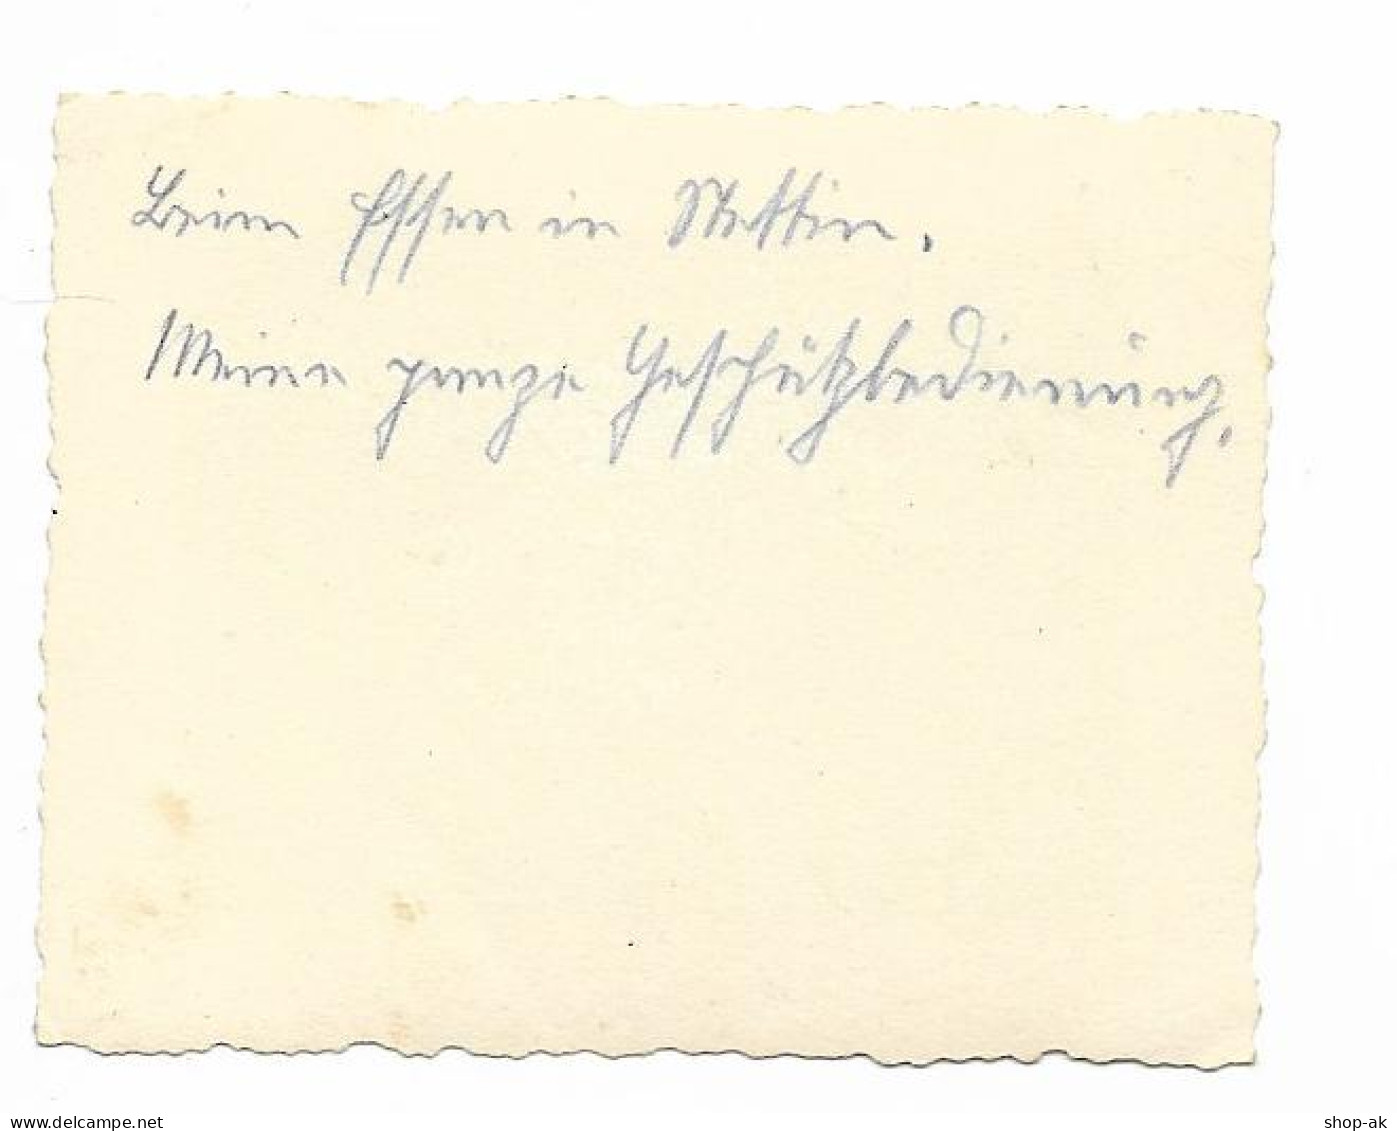 Beim Essen in Stettin.
Meine ganze Geschützbedienung.
www.delcampe.net
shop-ak